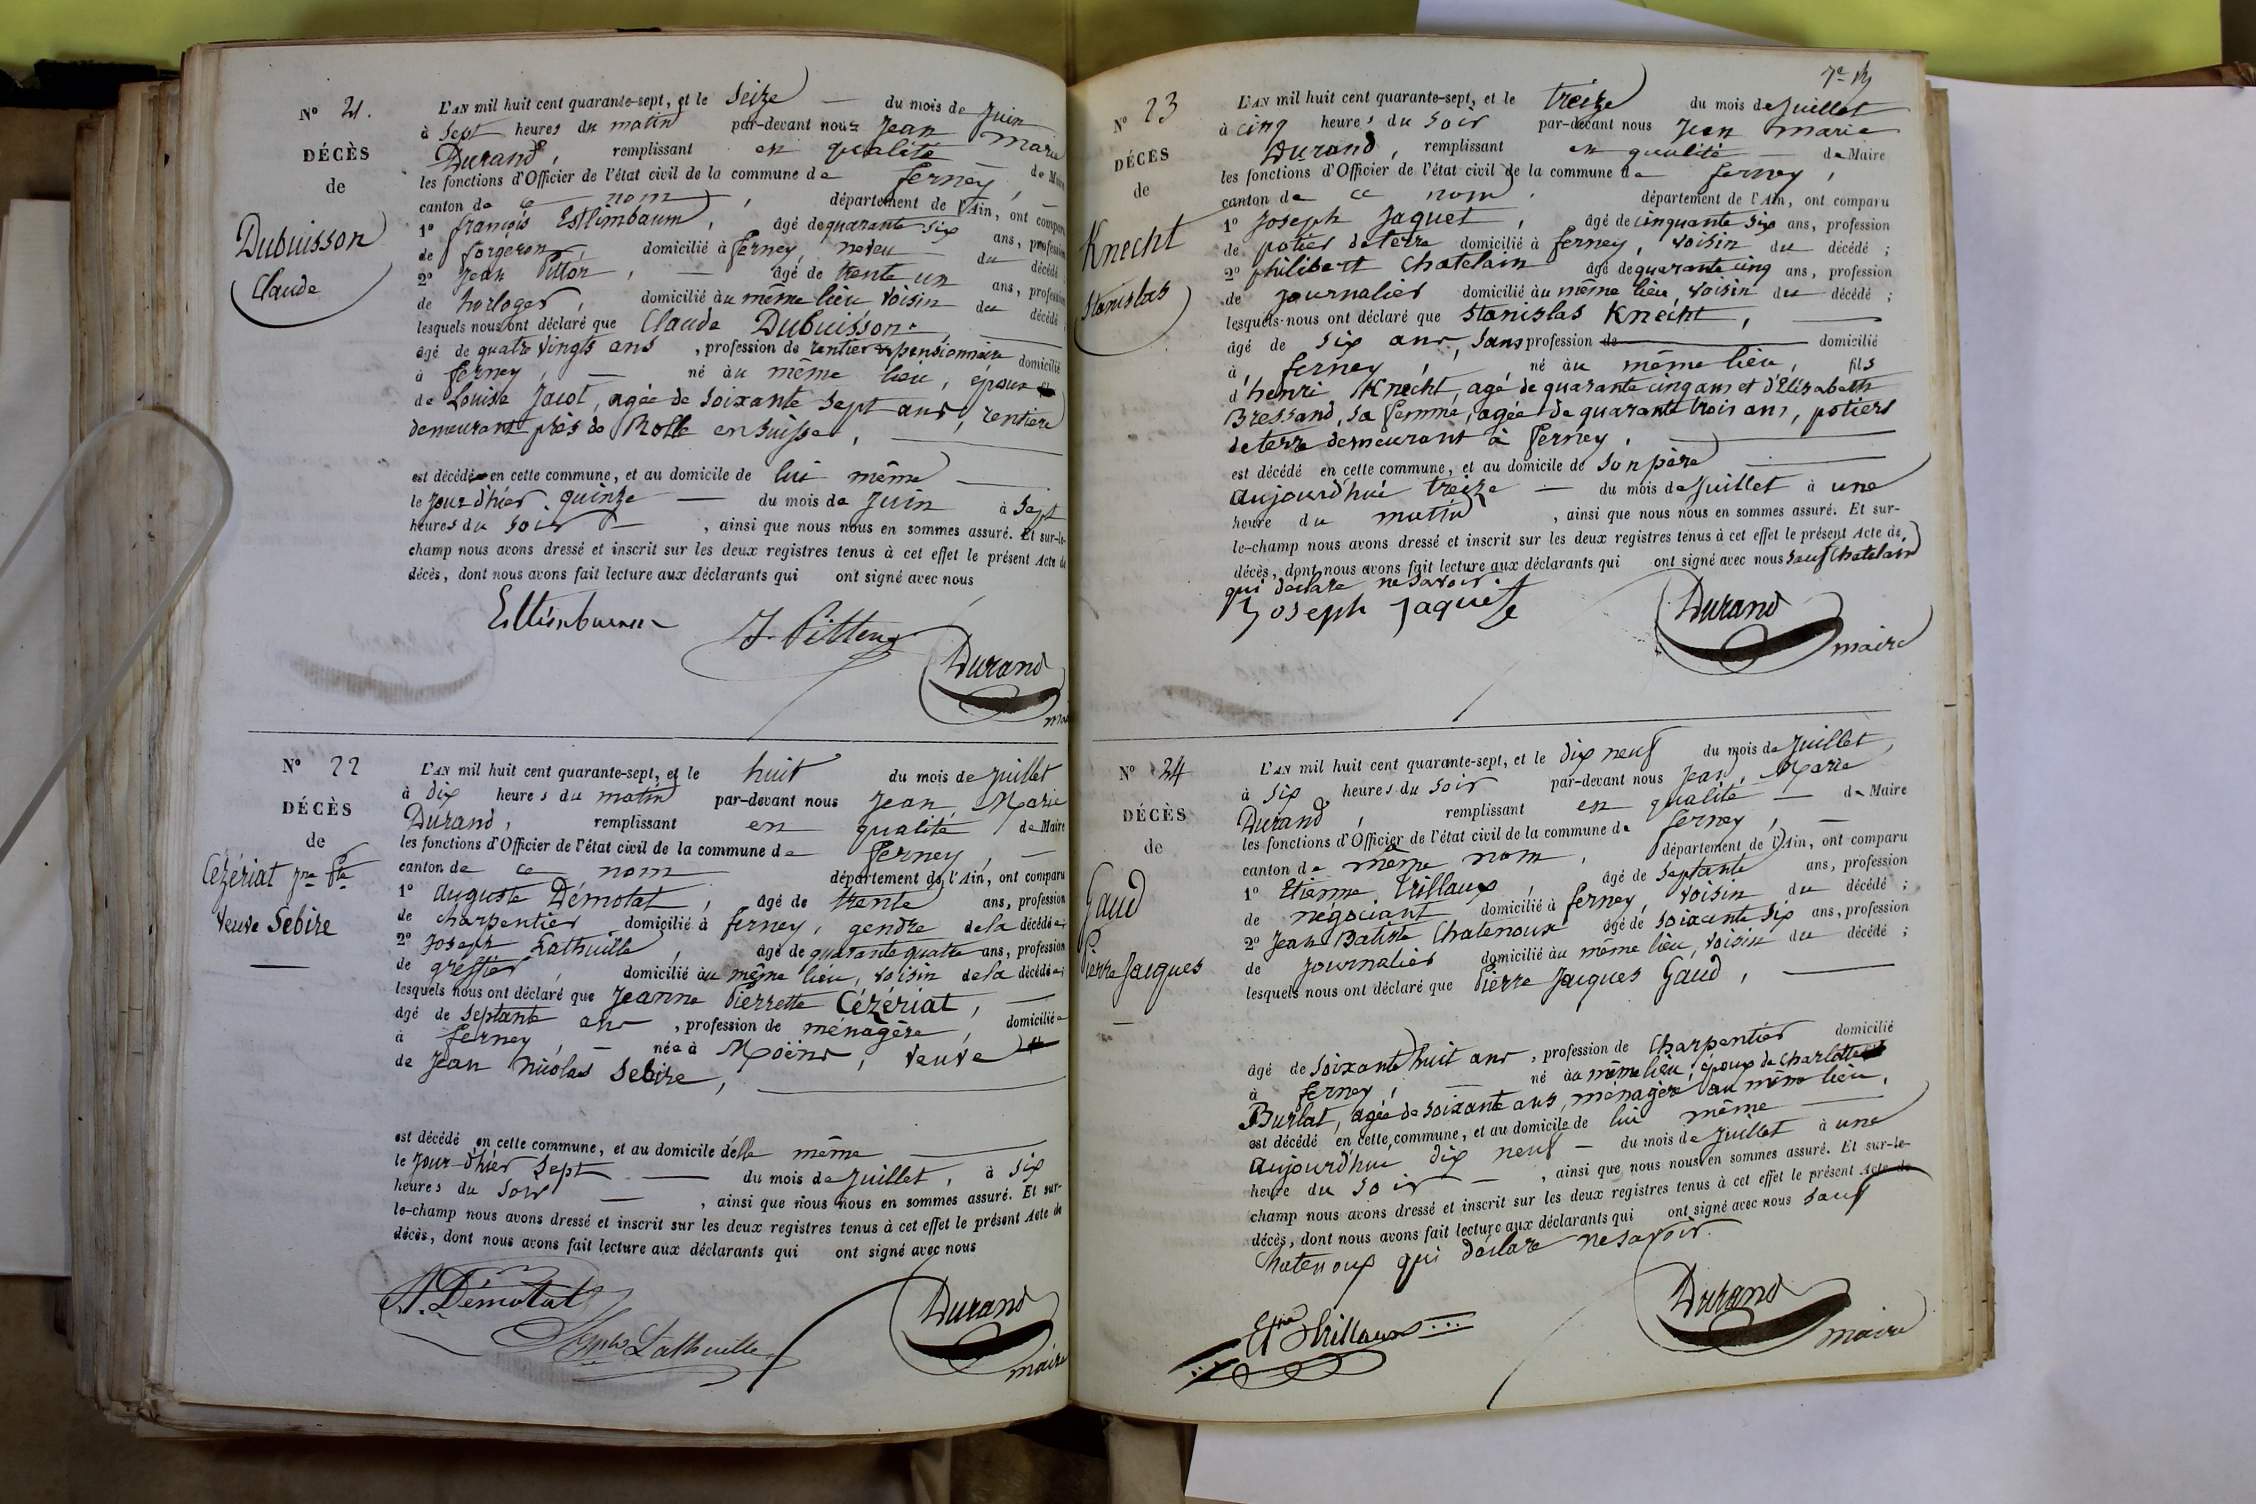 N° 21.
DÉCÈS
de
Dubuisson
Claude
L'AN mil huit cent quarante-sept, et le seize — du mois de Juin
à sept heures du matin par-devant nous Jean Marie
Durand, remplissant en qualité de Maire
les fonctions d'Officier de l'état civil de la commune de ferney,
canton de ce nom, département de l'Ain, ont comparu
1° françois Estlimbaum, âgé de quarante six ans, profession
de forgeron, domicilié à ferney, neveu du décédé
2° Jean Pitton, — âgé de trente un ans, profession
de horloger, domicilié au même lieu voisin du décédé;
lesquels nous ont déclaré que Claude Dubuisson
âgé de quatre vingts ans, profession de rentier pensionnaire domicilié
à ferney, — né au même lieu, époux
de Louise Jacot, agée de soixante sept ans, rentiere
demeurant près de Rolle en Suisse,
est décédé en cette commune, et au domicile de lui même
le jour d'hier quinze — du mois de Juin à sept
heures du soir —, ainsi que nous nous en sommes assuré. Et sur-le-
champ nous avons dressé et inscrit sur les deux registres tenus à cet effet le présent Acte de
décès, dont nous avons fait lecture aux déclarants qui ont signé avec nous
J. Pitton
Durand
maire
N° 22
DÉCÈS
de
Cézériat Jne Pte
veuve Sebire
L'AN mil huit cent quarante-sept, et le huit du mois de Juillet
à dix heures du matin par-devant nous Jean Marie
Durand, remplissant en qualité de Maire
les fonctions d'Officier de l'état civil de la commune de ferney,
canton de ce nom département de l'Ain, ont comparu
1° auguste Démolat, âgé de trente ans, profession
de charpentier domicilié à ferney, gendre de la décédée;
2° Joseph Lathuille, âgé de quarante quatre ans, profession
de greffier, domicilié au même lieu, voisin de la décédée;
lesquels nous ont déclaré que Jeanne Pierrette Cézériat,
âgé de septante ans, profession de ménagère, domiciliée
à ferney, — née à Moëns, veuve
de Jean Nicolas Sebire,
est décédé en cette commune, et au domicile d'elle même
le jour d'hier sept — du mois de Juillet, à six
heures du soir —, ainsi que nous nous en sommes assuré. Et sur-
le-champ nous avons dressé et inscrit sur les deux registres tenus à cet effet le présent Acte de
décès, dont nous avons fait lecture aux déclarants qui ont signé avec nous
A. Démolat
Lathuille
Durand
maire
N° 23
DÉCÈS
de
Knecht
Stanislas
L'AN mil huit cent quarante-sept, et le treize du mois de Juillet
à cinq heures du soir par-devant nous Jean Marie
Durand, remplissant en qualité — de Maire
les fonctions d'Officier de l'état civil de la commune de ferney,
canton de ce nom, département de l'Ain, ont comparu
1° Joseph Jaquet, âgé de cinquante six ans, profession
de potier de terre domicilié à ferney, voisin du décédé;
2° philibert Chatelain âgé de quarante cinq ans, profession
de journalier domicilié au même lieu, voisin du décédé;
lesquels nous ont déclaré que stanislas Knecht,
âgé de six ans, sans profession de domicilié
à ferney, né au même lieu, fils
d'henri Knecht, agé de quarante cinq ans et d'Elisabeth
Bressand, sa femme, agée de quarante trois ans, potiers
de terre demeurant à ferney.
est décédé en cette commune, et au domicile de son père
aujourd'hui treize — du mois de Juillet à une
heure du matin, ainsi que nous nous en sommes assuré. Et sur-
le-champ nous avons dressé et inscrit sur les deux registres tenus à cet effet le présent Acte de
décès, dont nous avons fait lecture aux déclarants qui ont signé avec nous sauf Chatelain
qui déclare ne savoir.
Joseph Jaquet
Durand
maire
N° 24
DÉCÈS
de
Gaud
Pierre Jacques
L'AN mil huit cent quarante-sept, et le dix neuf du mois de Juillet,
à six heures du soir par-devant nous Jean Marie
Durand, remplissant en qualité — de Maire
les fonctions d'Officier de l'état civil de la commune de ferney,
canton de même nom, département de l'Ain, ont comparu
1° Etienne Trillaux, âgé de septante ans, profession
de négociant domicilié à ferney, voisin du décédé;
2° Jean Batiste Chatenoux âgé de soixante six ans, profession
de journalier domicilié au même lieu, voisin du décédé;
lesquels nous ont déclaré que Pierre Jacques Gaud,
âgé de soixante huit ans, profession de Charpentier domicilié
à ferney, né au même lieu, époux de Charlotte
Burlat, agée de soixante ans, ménagère au même lieu,
est décédé en cette commune, et au domicile de lui même
aujourd'hui dix neuf — du mois de Juillet à une
heure du soir —, ainsi que nous nous en sommes assuré. Et sur-le-
champ nous avons dressé et inscrit sur les deux registres tenus à cet effet le présent Acte de
décès, dont nous avons fait lecture aux déclarants qui ont signé avec nous sauf
Chatenoux qui déclare ne savoir.
Durand
maire